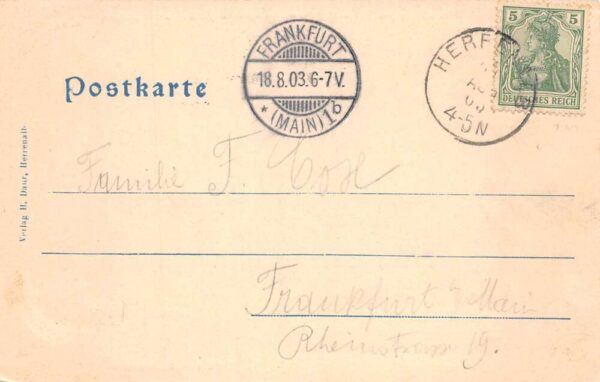 Postkarte
FRANKFURT
18.8.03.6-7V.
* (MAIN) 1
4-5N
5 5
DEUTSCHES REICH
Verlag H. Daur, Herrenalb
Familie F.
Frankfurt Main
Rheinstrasse 19.